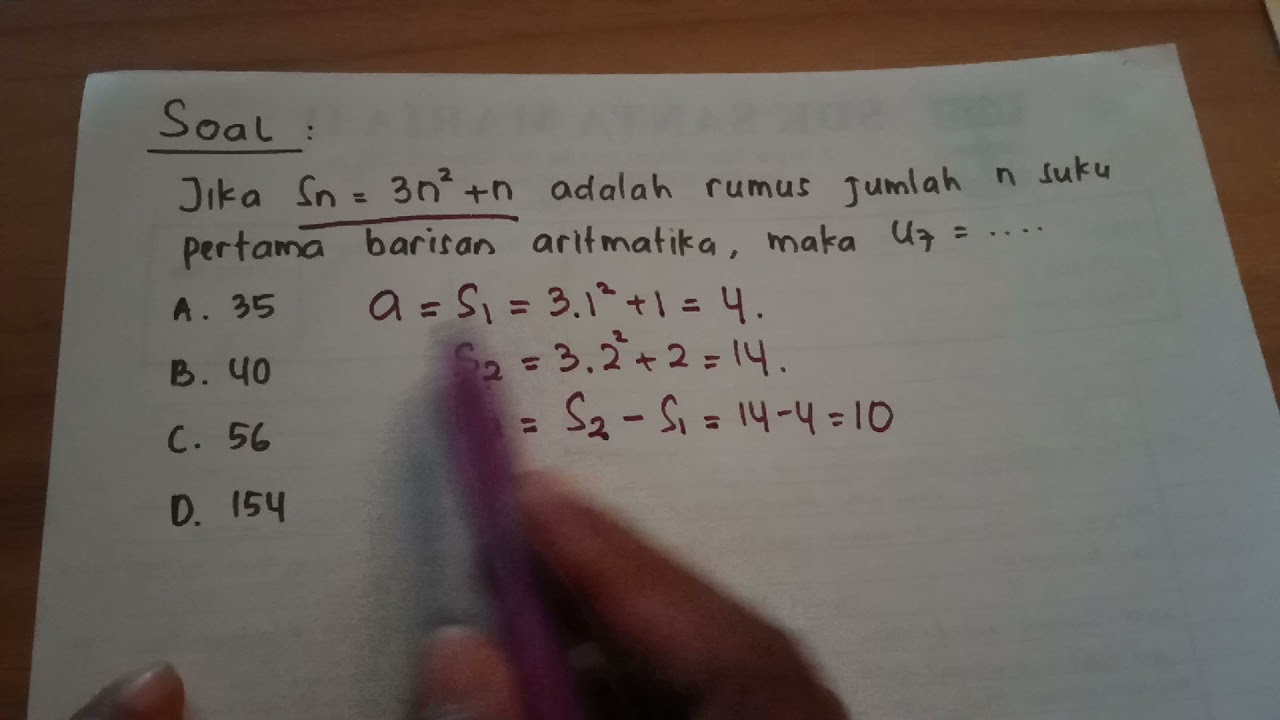 Soal :
Jika Sn = 3n² + n adalah rumus jumlah n suku
pertama barisan aritmatika, maka U₇ = ....
A. 35
a = S₁ = 3.1² + 1 = 4.
B. 40
S₂ = 3.2² + 2 = 14.
C. 56
= S₂ - S₁ = 14 - 4 = 10
D. 154